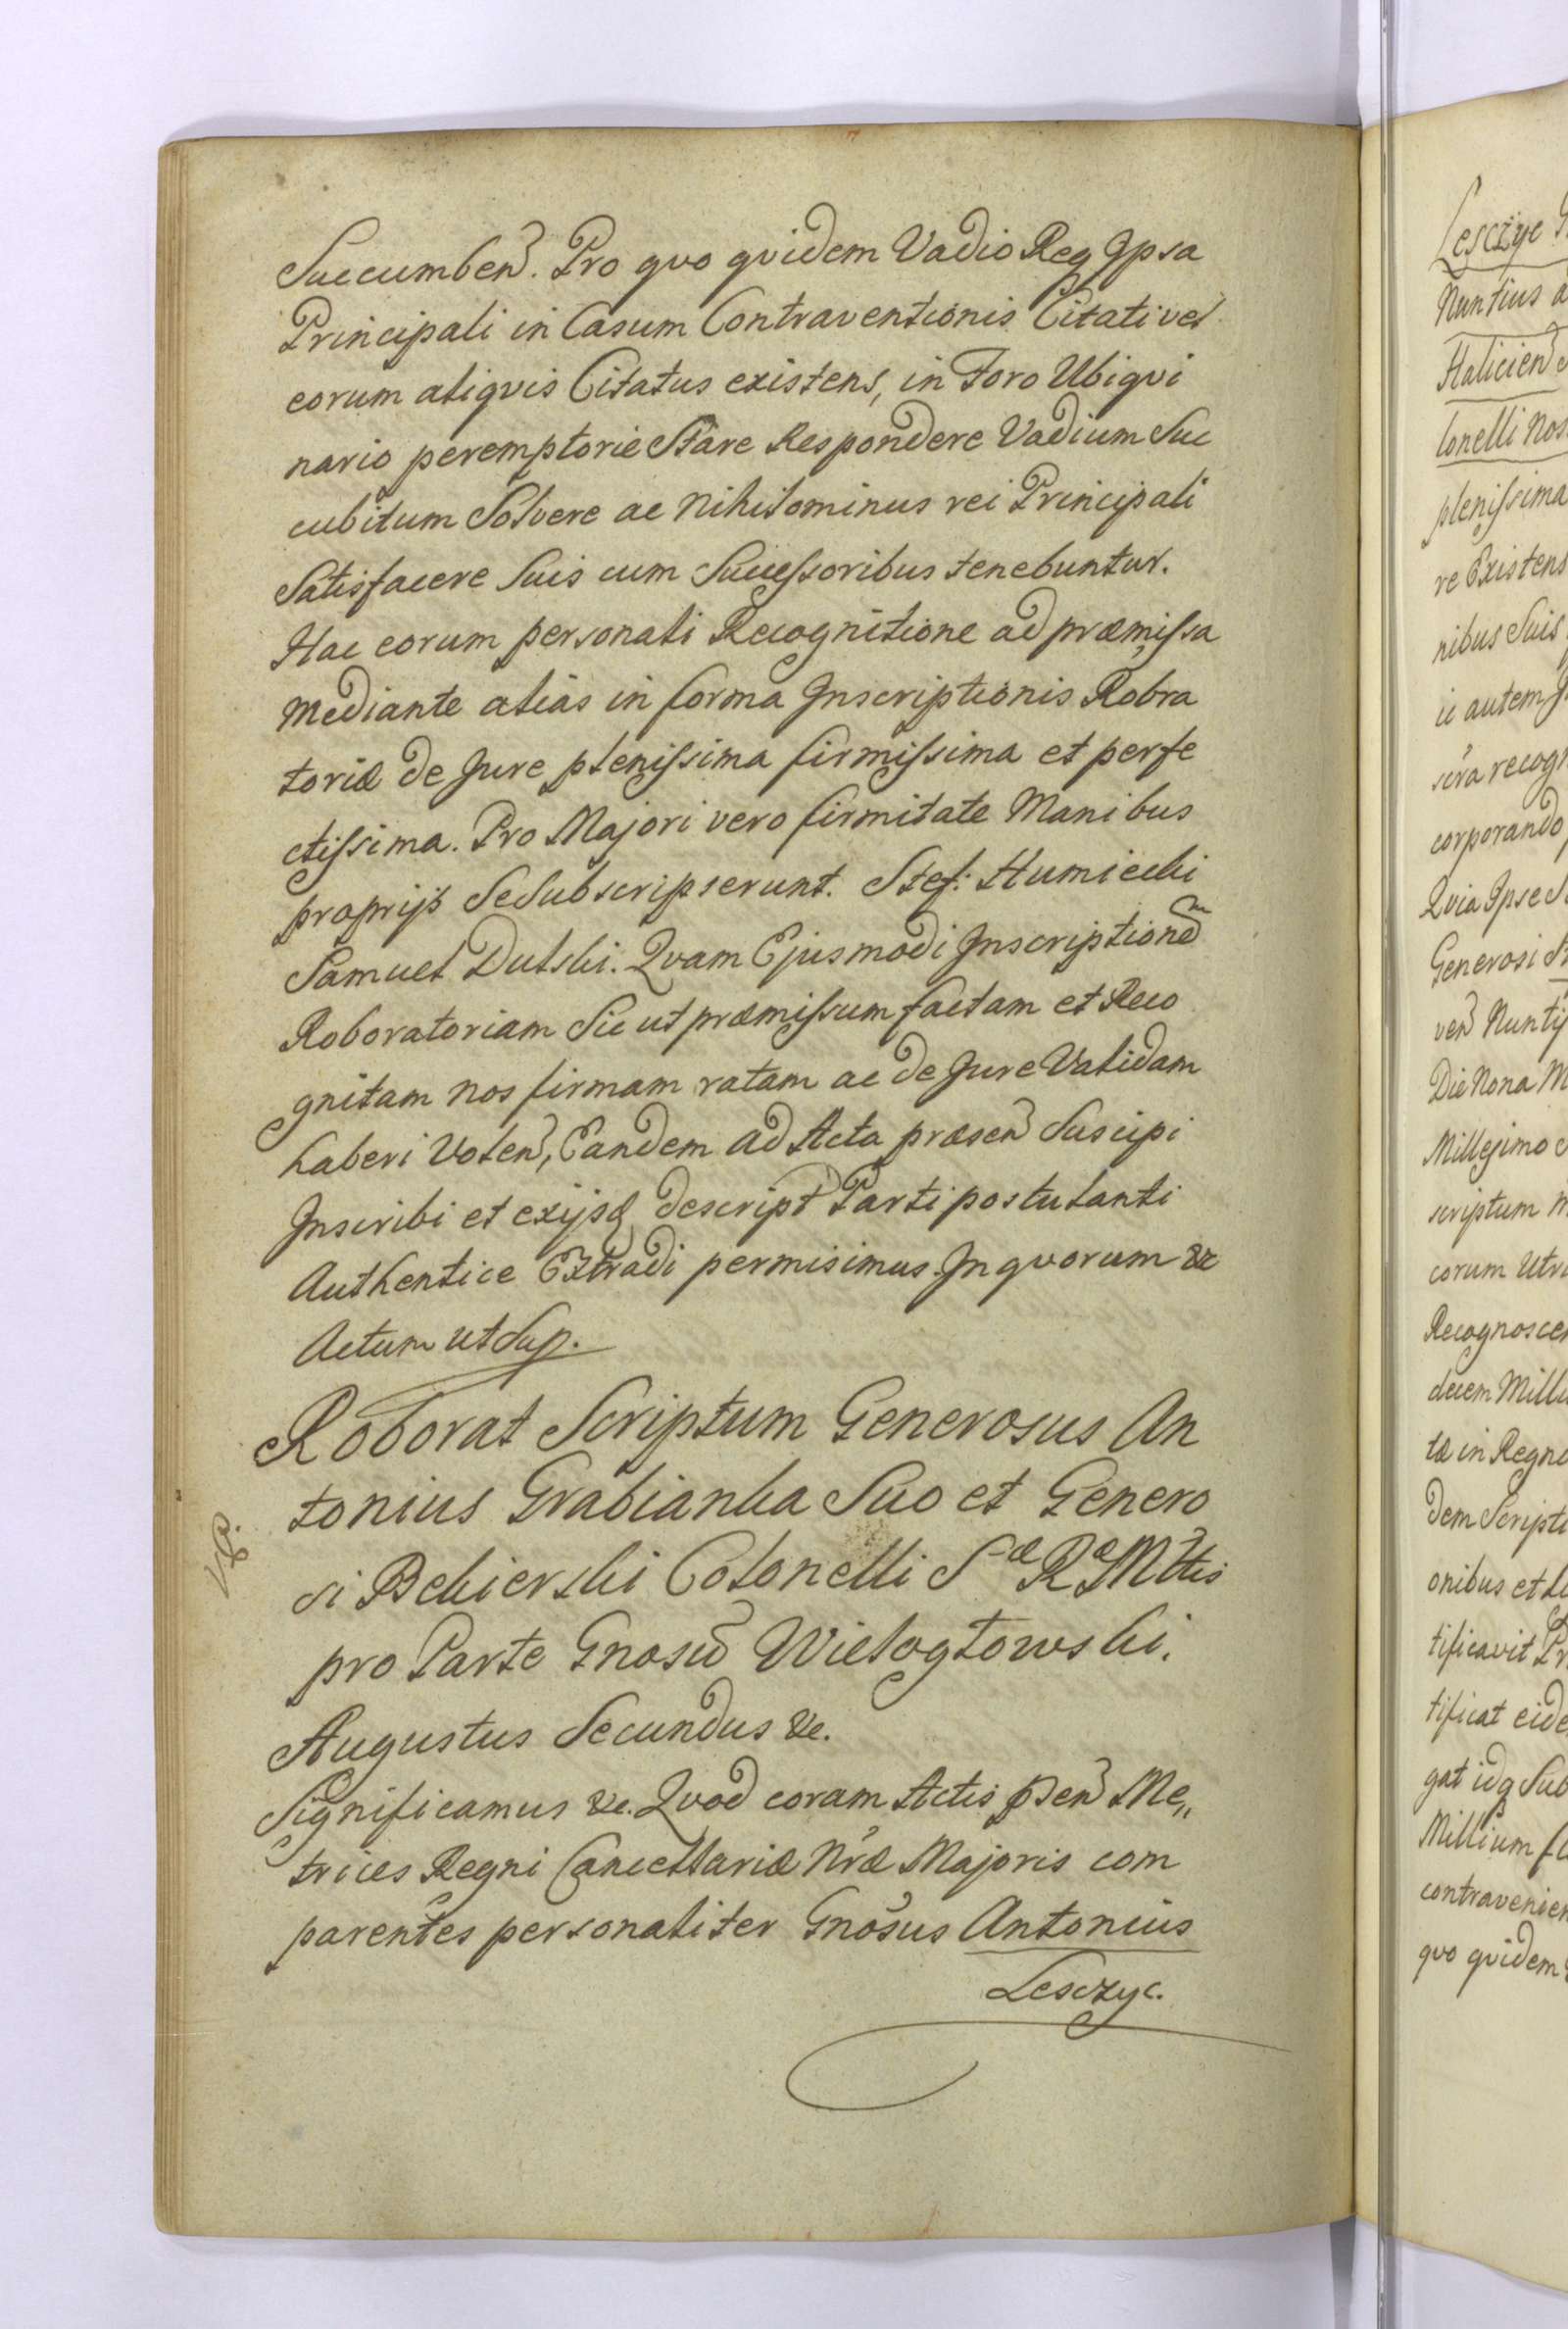 Succumben. Pro quo quidem Vadio Req Ipsa
Principali in Casum Contraventionis Citati vel
eorum aliquis Citatus existens, in Foro Ubiqui
nario peremptorie Stare Respondere Vadium Suc
cubitum Solvere ac Nihilominus rei Principali
Satisfacere Suis cum Successoribus tenebuntur.
Hac eorum personali Recognitione ad præmissa
Mediante alias in forma Inscriptionis Robra
toriæ de Jure plenissima firmissima et perfe
ctissima. Pro Majori vero firmitate Manibus
proprijs Se Subscripserunt. Stef: Humiecki
Samuel Dulski. Quam Ejusmodi Inscriptionẽm
Roboratoriam Sic ut præmissum factam et Reco
gnitam nos firmam ratam ac de Jure Validam
haberi Volen, Eandem ad Acta præsen Suscipi
Inscribi et exijsq descript Parti postulanti
Authentice Extradi permisimus. In quorum &c
Actum ut Sup.
Roborat Scriptum Generosus An
tonius Grabianka Suo et Genero
si Bekierski Colonelli Sæ Ræ Mttis
pro Parte Gnosi Wielogłowski.
Augustus Secundus &c.
Significamus &c. Quod coram Actis psen Me„
trices Regni Cancellariæ Nræ Majoris com
parentes personaliter Gnosus Antonius
Lesczyc.
Lesczyc
Nuntius
Halicien
lonelli Nos
plenissima
re Existens
nibus Suis
ii autem
scra recog
corporando
Quia Ipse
Generosi
ven Nuntij
Die Nona M
Millesimo
scriptum
eorum Utri
Recognoscen
decem Mille
tæ in Regno
dem Scripti
onibus et
tificavit
tificat eide
gat idq Sub
Millium fl
contravenien
quo quidem